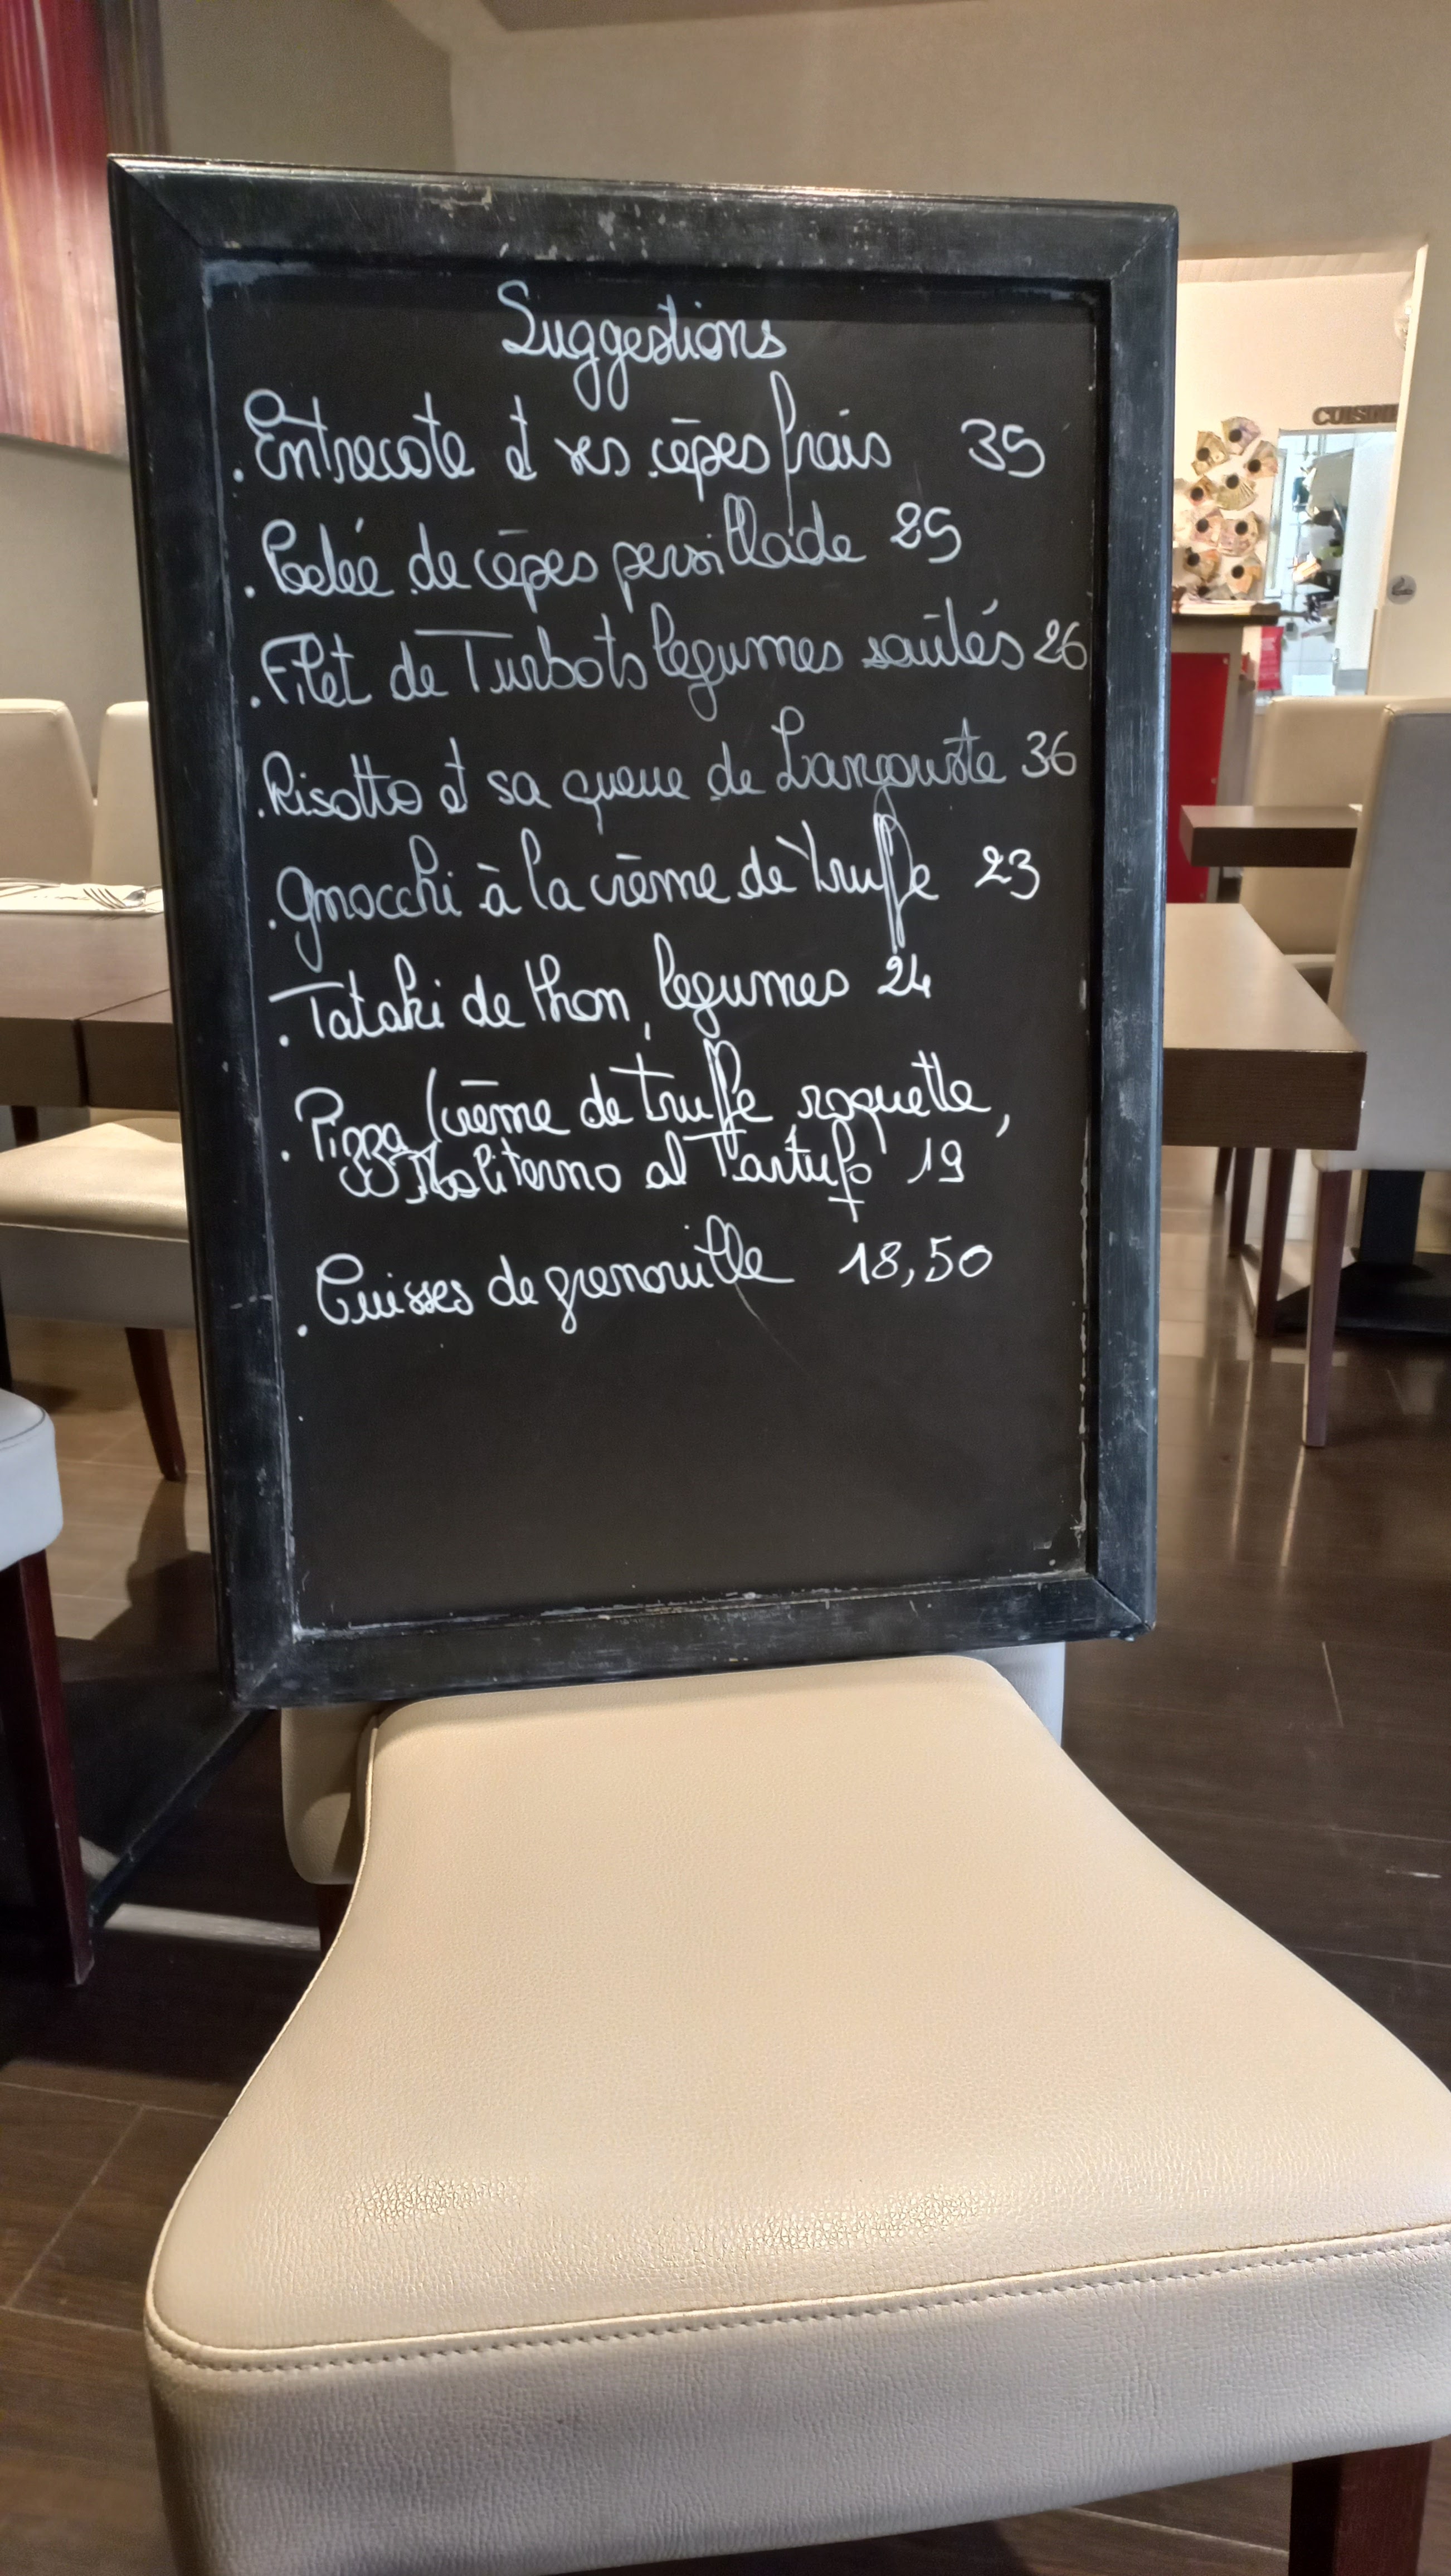 Suggestions
. Entrecote et ses cèpes frais 35
. Poelée de cèpes persillade 25
. Filet de Turbots légumes sautés 26
. Risotto et sa queue de Langouste 36
. Gnocchi à la crème de truffe 23
. Tataki de thon, légumes 24
. Pizza Crème de truffe roquette,
Moliterno al Tartufo 19
. Cuisses de grenouille 18,50
CUISINE